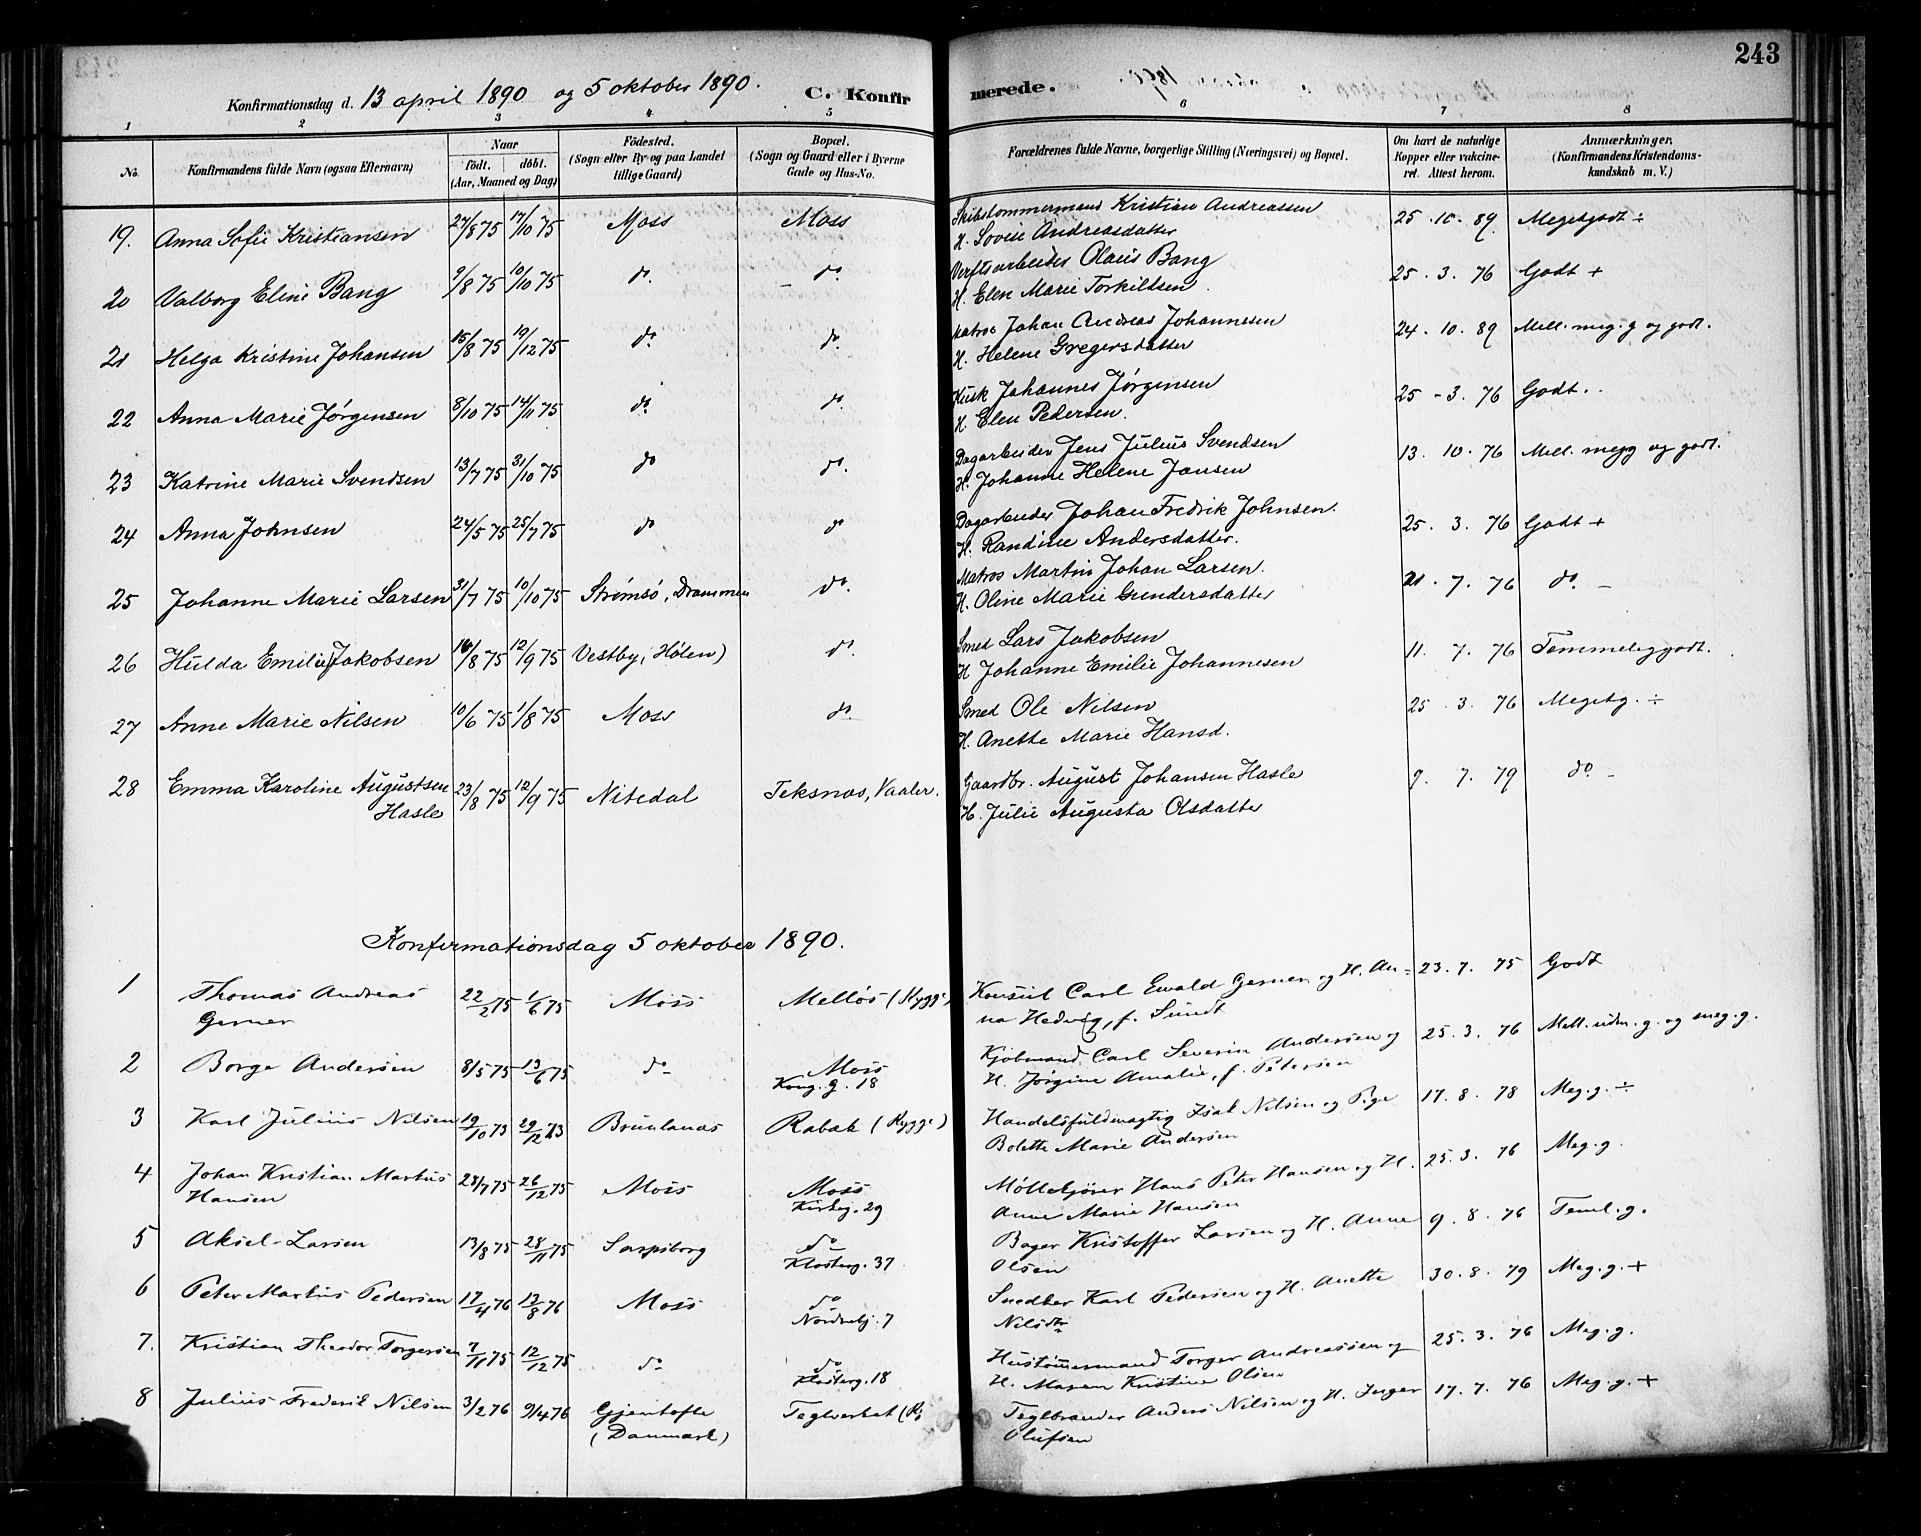 243
Konfirmationsdag d. 13 april 1890 og 5 oktober 1890. C. Konfir merede.
1 2 3 4 5 6 7 8
No. Konfirmandens fulde Navn (ogsaa Efternavn) Naar født. døbt. (Aar, Maaned og Dag) Fødested. (Sogn eller By og paa Landet tillige Gaard) Bopæl. (Sogn og Gaard eller i Byerne Gade og Hus-No. Forældrenes fulde Navne, borgerlige Stilling (Næringsvei) og Bopæl. Om havt de naturlige Kopper eller vakcineret. Attest herom. Anmærkninger. (Konfirmandens Kristendomskundskab m. V.)
19. Anna Sofie Kristiansen 27/8 75 17/10 75 Moss Moss Skibstømmermand Kristian Andreassen 25. 10. 89 Megetgodt ÷
H. Lovise Andreasdatter
20 Valborg Eline Bang 9/8 75 10/10 75 do. do. Verftsarbeider Olaus Bang 25. 3. 76 Godt +
H. Elen Marie Torkildsen.
21 Helga Kristine Johansen 15/8 75 19/12 75 do. do. Matros Johan Andreas Johannesen 24. 10. 89 Mell. meg. g og godt.
H. Helene Gregersdatter
22 Anna Marie Jørgensen 8/10 75 14/11 75 do. do. Kusk Johannes Jørgensen 25 - 3. 76 Godt..
H. Elen Pedersen.
23 Katrine Marie Svendsen 13/7 75 31/10 75 do do. Dagarbeider Jens Julius Svendsen 13. 10. 76 Mell. megg og godt.
H. Johanne Helene Jansen
24 Anna Johnsen 24/5 75 25/7 75 do do Dagarbeider Johan Fredrik Johnsen. 25. 3. 76 Godt +
H. Randine Andersdatter.
25 Johanne Marie Larsen 31/7 75 10/10 75 Strømsø, Drammen do. Matros Martin Johan Larsen. 21. 7. 76 do. -
H. Oline Marie Gundersdatter
26 Hulda Emilie Jakobsen 16/8 75 12/9 75 Vestby, Hølen) do. Smed Lars Jakobsen 11. 7. 76 Temmeliggodt.
H Johanne Emilie Johannesen
27 Anne Marie Nilsen 10/6 75 1/8 75 Moss do. Smed Ole Nilsen 25. 3. 76 Megetg. ÷
H. Anette Marie Hansd.
28 Emma Karoline Augustsen Hasle 23/8 75 12/9 75 Nitedal Teksnæs, Vaaler. Gaardbr. August Johansen Hasle 9. 7. 79 do -
H. Julie Augusta Olsdatter
Konfirmationsdag 5 oktober 1890.
1 Thomas Andreas Gerner 22/2 75 1/6 75 Moss Melløs (Rygge) Konsul Carl Ewald Gerner og H. An- 23. 7. 75 Godt
na Hedvig, f. Sundt
2 Borge Andersen 8/5 75 13/6 75 do Moss Kong. g. 18 Kjøbmand Carl Severin Andersen og 25. 3. 76 Mell. udm. g. og meg. g.
H. Jørgine Amalie, f. Petersen
3 Karl Julius Nilsen 19/10 73 29/12 73 Brunlanæs Rabæk (Rygge) Handelsfuldmægtig Isak Nilsen og Pige 17. 8. 78 Meg. g. ÷
Bolette Marie Andersen
4 Johan Kristian Martius Hansen 28/7 75 26/12 75 Moss Moss Kirkeg. 29 Møllekjører Hans Peter Hansen og H. 25. 3. 76 Meg. g.
Anne Marie Hansen
5 Aksel Larsen 13/8 75 28/11 75 Sarpsborg do Klosterg. 37 Bager Kristoffer Larsen og H. Anne 9. 8. 76 Teml. g.
Olsen
6 Peter Martius Pedersen 17/4 76 13/8 76 Moss do Nordrebj. 7 Snedker Karl Pedersen og H. Anette 30. 8. 79 Meg. g. +
Nilsdtr
7. Kristian Theodor Torgersen 7/11 75 12/12 75 do do Klosterg. 18 Hustømmermand Torger Andreassen og 25. 3. 76 Meg. g.
H. Maren Kristine Olsen
8 Julius Frederik Nilsen 3/2 76 9/4 76 Gjentofte (Danmark) Teglverket (Ry Teglbrænder Anders Nilsen og H. Inger 17. 7. 76 Meg. g. +
Olufsen